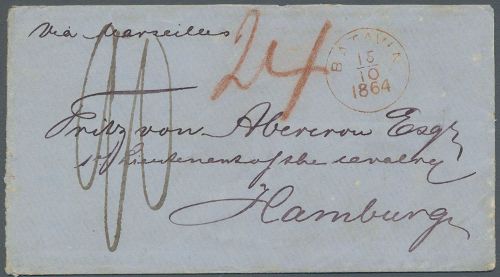 Via Marseilles
24
BATAVIA
15
10
1864
Fritz von Abercron Esqr
1st Lieutenant of the cavalry
Hamburg